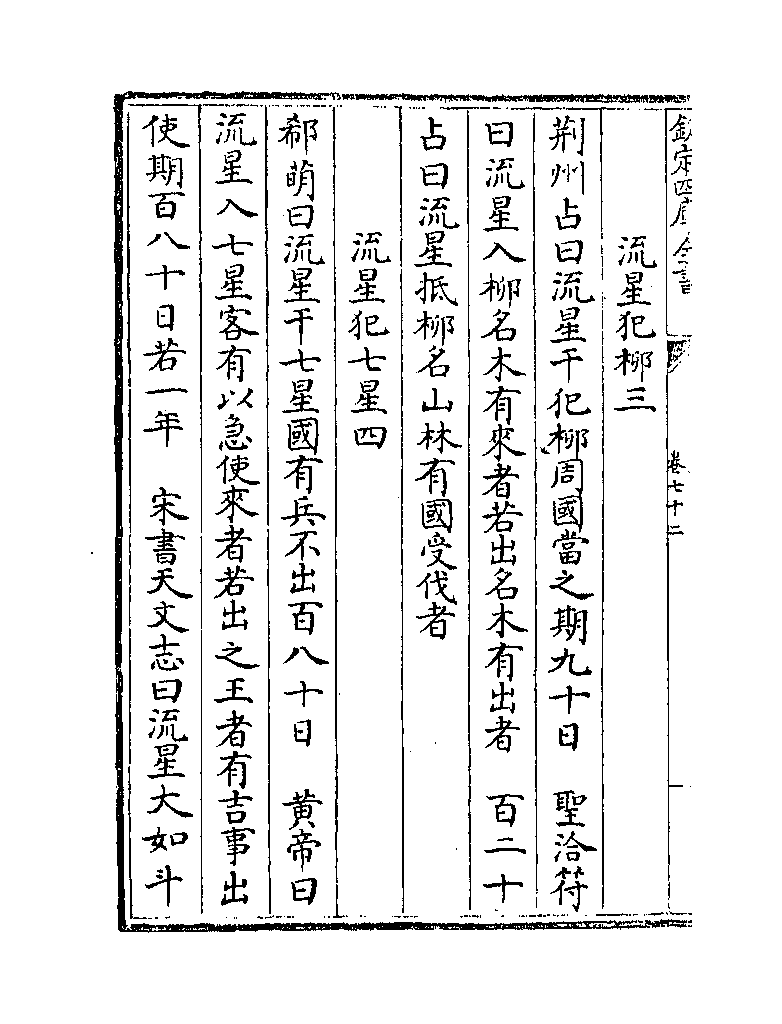 欽定四庫全書
卷七十二
流星犯柳三
荆州占曰流星干犯柳周國當之期九十日　聖洽符
曰流星入柳名木有來者若出名木有出者　百二十
占曰流星抵柳名山林有國受伐者
流星犯七星四
郗萌曰流星干七星國有兵不出百八十日　黄帝曰
流星入七星客有以急使來者若出之王者有吉事出
使期百八十日若一年　宋書天文志曰流星大如斗